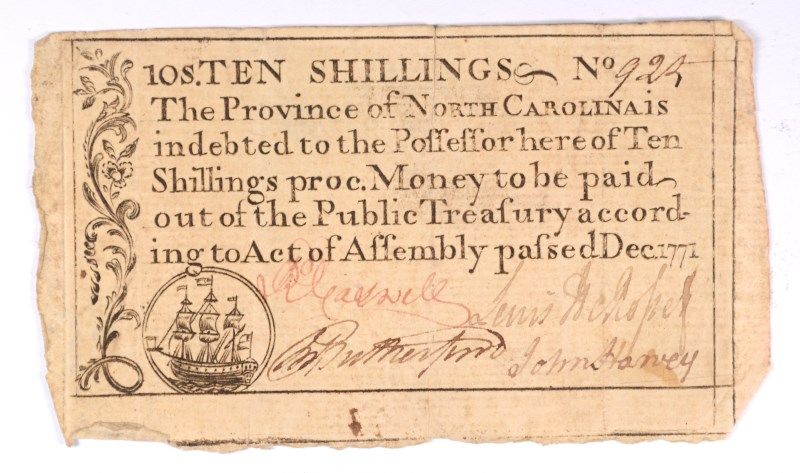 10S. TEN SHILLINGS No 925
The Province of NORTH CAROLINA is
indebted to the Poſſeſſor here of Ten
Shillings proc. Money to be paid
out of the Public Treaſury accord-
ing to Act of Aſſembly paſsed Dec. 1771
Rd Caswell
Lewis DeRosset
Rutherfurd
John Harvey